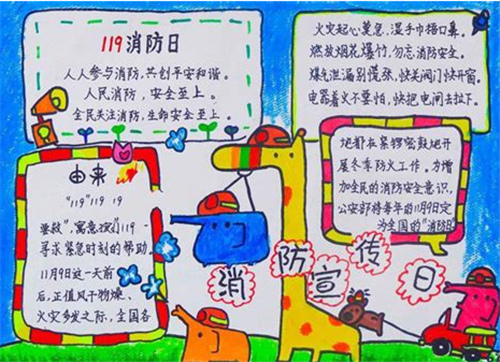 119消防日
人人参与消防,共创平安和谐。
人民消防,安全至上。
全民关注消防,生命安全至上。
火灾起心莫急,湿手巾捂口鼻。
燃放烟花爆竹,勿忘消防安全。
煤气泄漏别慌张,快关阀门快开窗。
电器着火不要怕,快把电闸去拉下。
由来
"119" 119 19
119
寻求紧急时刻的帮助。
11月9日这一天前
后,正值风干物燥、
火灾多发之际,全国各
地都在紧锣密鼓地开
展冬季防火工作。为增
加全民的消防安全意识,
公安部将每年的11月9日定
为全国的"消防日
消防宣传日